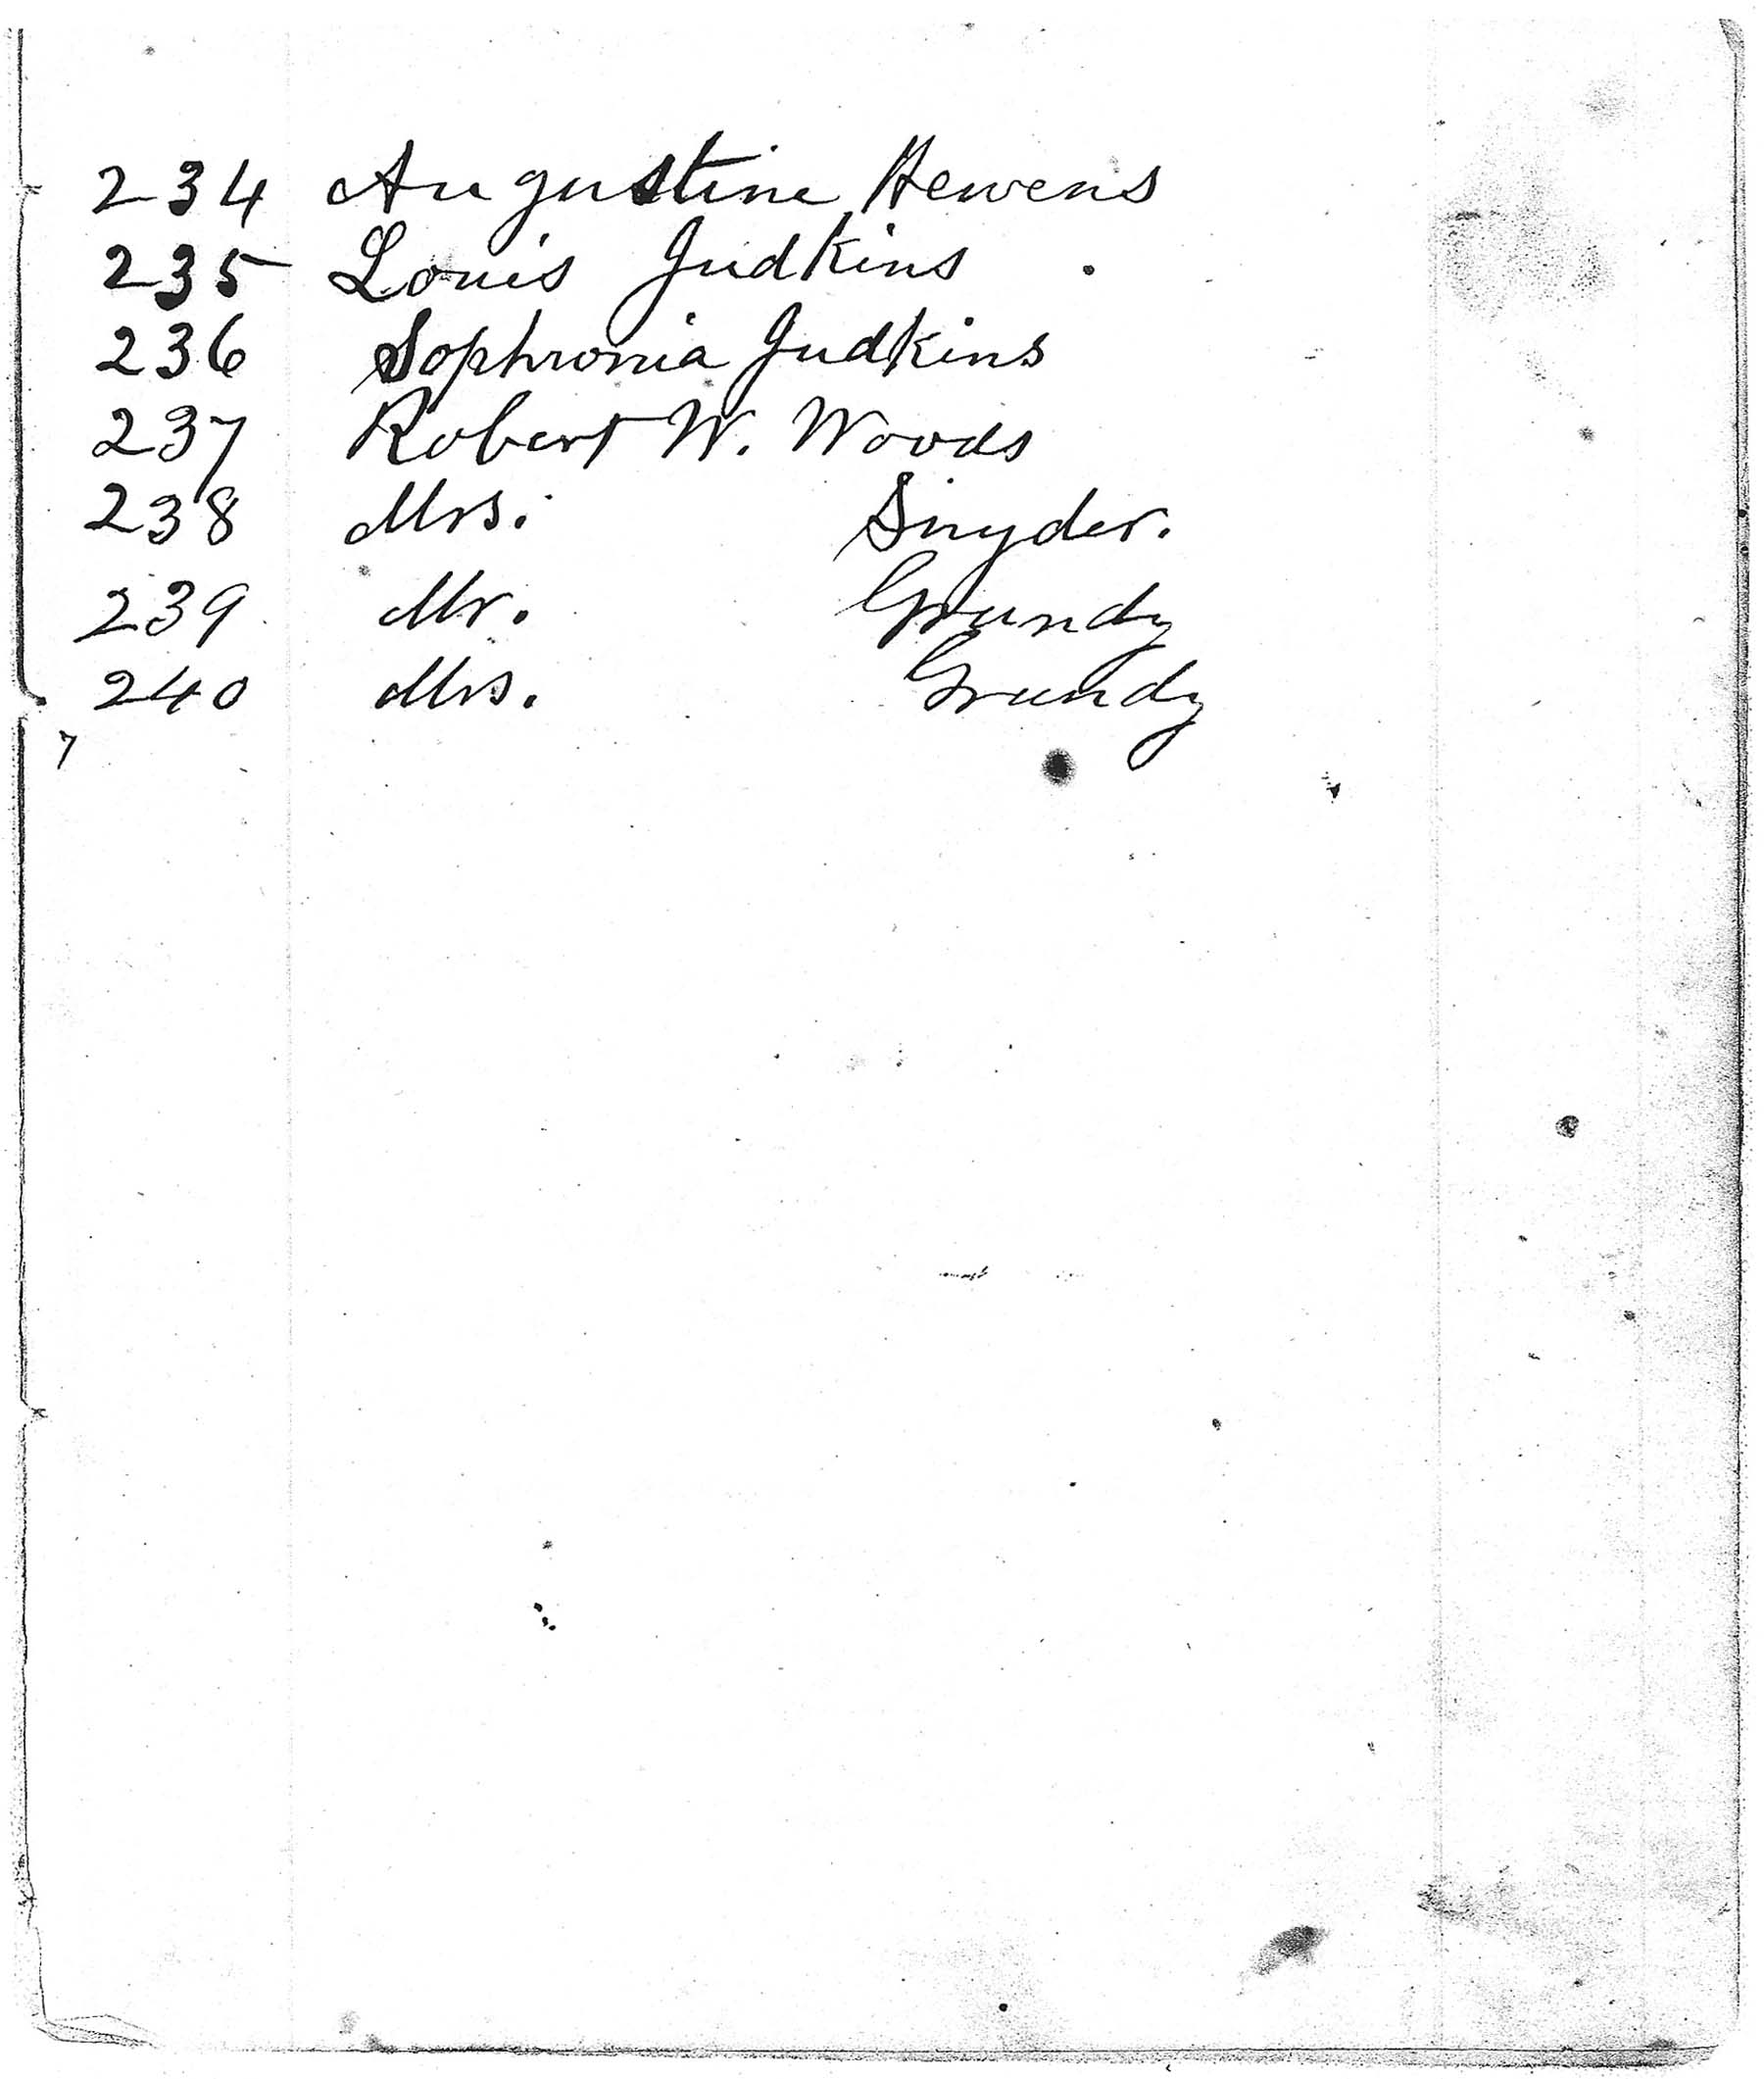 234 Augustine Hewens
235 Louis Judkins
236 Sophronia Judkins
237 Robert W. Woods
238 Mrs. Snyder.
239 Mr. Grundy
240 Mrs. Grundy
7